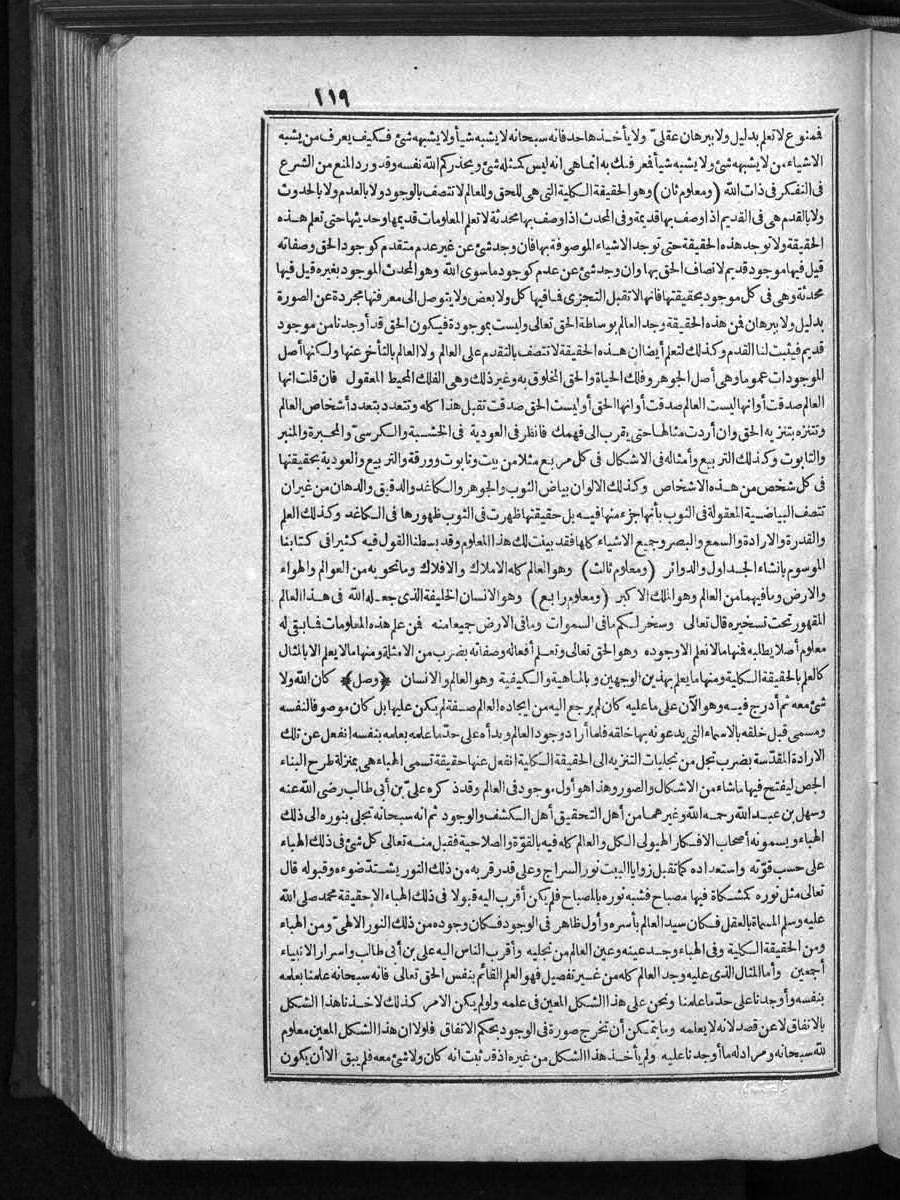 ١١٩
فمنوع لا تعلم بدليل ولا ببرهان عقلي ولا يأخذها حد فانه سبحانه لا يشبه شيأ ولا يشبهه شئ فكيف يعرف من يشبه
الاشياء من لا يشبهه شئ ولا يشبه شيأ فعرفتك به انما هي انه ليس كمثله شئ ويحذركم الله نفسه وقد ورد المنع من الشرع
في التفكر في ذات الله (ومعلوم ثان) وهو الحقيقة الكلية التي هي للحق وللعالم لا تتصف بالوجود ولا بالعدم ولا بالحدوث
ولا بالقدم هي في القديم اذا وصف بها قديمة وفي المحدث اذا وصف بها محدثة لا تعلم المعلومات قديمها وحديثها حتى تعلم هذه
الحقيقة ولا توجد هذه الحقيقة حتى توجد الاشياء الموصوفة بها فان وجد شئ عن غير عدم متقدم كوجود الحق وصفاته
قيل فيها موجود قديم لاتصاف الحق بها وان وجد شئ عن عدم كوجود ما سوى الله وهو المحدث الموجود بغيره قيل فيها
محدثة وهي في كل موجود بحقيقتها فانها لا تقبل التجزى فما فيها كل ولا بعض ولا يتوصل الى معرفتها مجردة عن الصورة
بدليل ولا ببرهان فمن هذه الحقيقة وجد العالم بوساطة الحق تعالى وليست بموجودة فيكون الحق قد أوجدنا من موجود
قديم فيثبت لنا القدم وكذلك لتعلم أيضا ان هذه الحقيقة لا تتصف بالتقدم على العالم ولا العالم بالتأخر عنها ولكنها أصل
الموجودات عموما وهي أصل الجوهر وفلك الحياة والحق المخلوق به وغير ذلك وهي الفلك المحيط المعقول فان قلت انها
العالم صدقت أو انها ليست العالم صدقت أو انها الحق أو ليست الحق صدقت تقبل هذا كله وتتعدد بتعدد أشخاص العالم
وتتنزه بتنزيه الحق وان أردت مثالها حتى يقرب الى فهمك فانظر في العودية في الخشبة والكرسي والمحبرة والمنبر
والتابوت وكذلك التربيع وأمثاله في الاشكال في كل مربع مثلا من بيت وتابوت وورقة والتربيع والعودية بحقيقتها
في كل شخص من هذه الاشخاص وكذلك الالوان بياض الثوب والجوهر والكاغد والدقيق والدهان من غير ان
تتصف البياضية المعقولة في الثوب بأنها جزء منها فيه بل حقيقتها ظهرت في الثوب ظهورها في الكاغد وكذلك العلم
والقدرة والارادة والسمع والبصر وجميع الاشياء كلها فقد بينت لك هذا المعلوم وقد بسطنا القول فيه كثيرا في كتابنا
الموسوم بانشاء الجداول والدوائر (ومعلوم ثالث) وهو العالم كله الاملاك والافلاك وما تحويه من العوالم والهواء
والارض وما فيهما من العالم وهو الملك الاكبر (ومعلوم رابع) وهو الانسان الخليفة الذي جعله الله في هذا العالم
المقهور تحت تسخيره قال تعالى وسخر لكم ما في السموات وما في الارض جميعا منه فمن علم هذه المعلومات فما بقي له
معلوم أصلا يطلبه فمنها ما لا نعلم الا وجوده وهو الحق تعالى وتعلم أفعاله وصفاته بضرب من الامثلة ومنها ما لا يعلم الا بالمثال
كالعلم بالحقيقة الكلية ومنها ما يعلم بهذين الوجهين وبالماهية والكيفية وهو العالم والانسان ﴿وصل﴾ كان الله ولا
شئ معه ثم أدرج فيه وهو الآن على ما عليه كان لم يرجع اليه من ايجاده العالم صفة لم يكن عليها بل كان موصوفا لنفسه
ومسمى قبل خلقه بالاسماء التي يدعونه بها خلقه فلما أراد وجود العالم وبدأه على حد ما علمه بعلمه بنفسه انفعل عن تلك
الارادة المقدسة بضرب تجل من تجليات التنزيه الى الحقيقة الكلية انفعل عنها حقيقة تسمى الهباء هي بمنزلة طرح البناء
الجص ليفتتح فيها ما شاء من الاشكال والصور وهذا هو أول موجود في العالم وقد ذكره علي بن أبي طالب رضي الله عنه
وسهل بن عبد الله رحمه الله وغيرهما من أهل التحقيق أهل الكشف والوجود ثم انه سبحانه تجلى بنوره الى ذلك
الهباء ويسمونه أصحاب الافكار الهيولى الكل والعالم كله فيه بالقوة والصلاحية فقبل منه تعالى كل شئ في ذلك الهباء
على حسب قوته واستعداده كما تقبل زوايا البيت نور السراج وعلى قدر قربه من ذلك النور يشتد ضوءه وقبوله قال
تعالى مثل نوره كمشكاة فيها مصباح فشبه نوره بالمصباح فلم يكن أقرب اليه قبولا في ذلك الهباء الا حقيقة محمد صلى الله
عليه وسلم المسماة بالعقل فكان سيد العالم بأسره وأول ظاهر في الوجود فكان وجوده من ذلك النور الالهي ومن الهباء
ومن الحقيقة الكلية وفي الهباء وجد عينه وعين العالم من تجليه وأقرب الناس اليه علي بن أبي طالب واسرار الانبياء
أجمعين وأما المثال الذي عليه وجد العالم كله من غير تفصيل فهو العلم القائم بنفس الحق تعالى فانه سبحانه علمنا بعلمه
بنفسه وأوجدنا على حد ما علمنا ونحن على هذا الشكل المعين في علمه ولو لم يكن الامر كذلك لاخذنا هذا الشكل
بالاتفاق لا عن قصد لانه لا يعلمه وما يتمكن أن تخرج صورة في الوجود بحكم الاتفاق فلولا ان هذا الشكل المعين معلوم
لله سبحانه ومراد له ما أوجدنا عليه ولم يأخذ هذا الشكل من غيره اذ قد ثبت انه كان ولا شئ معه فلم يبق الا أن يكون